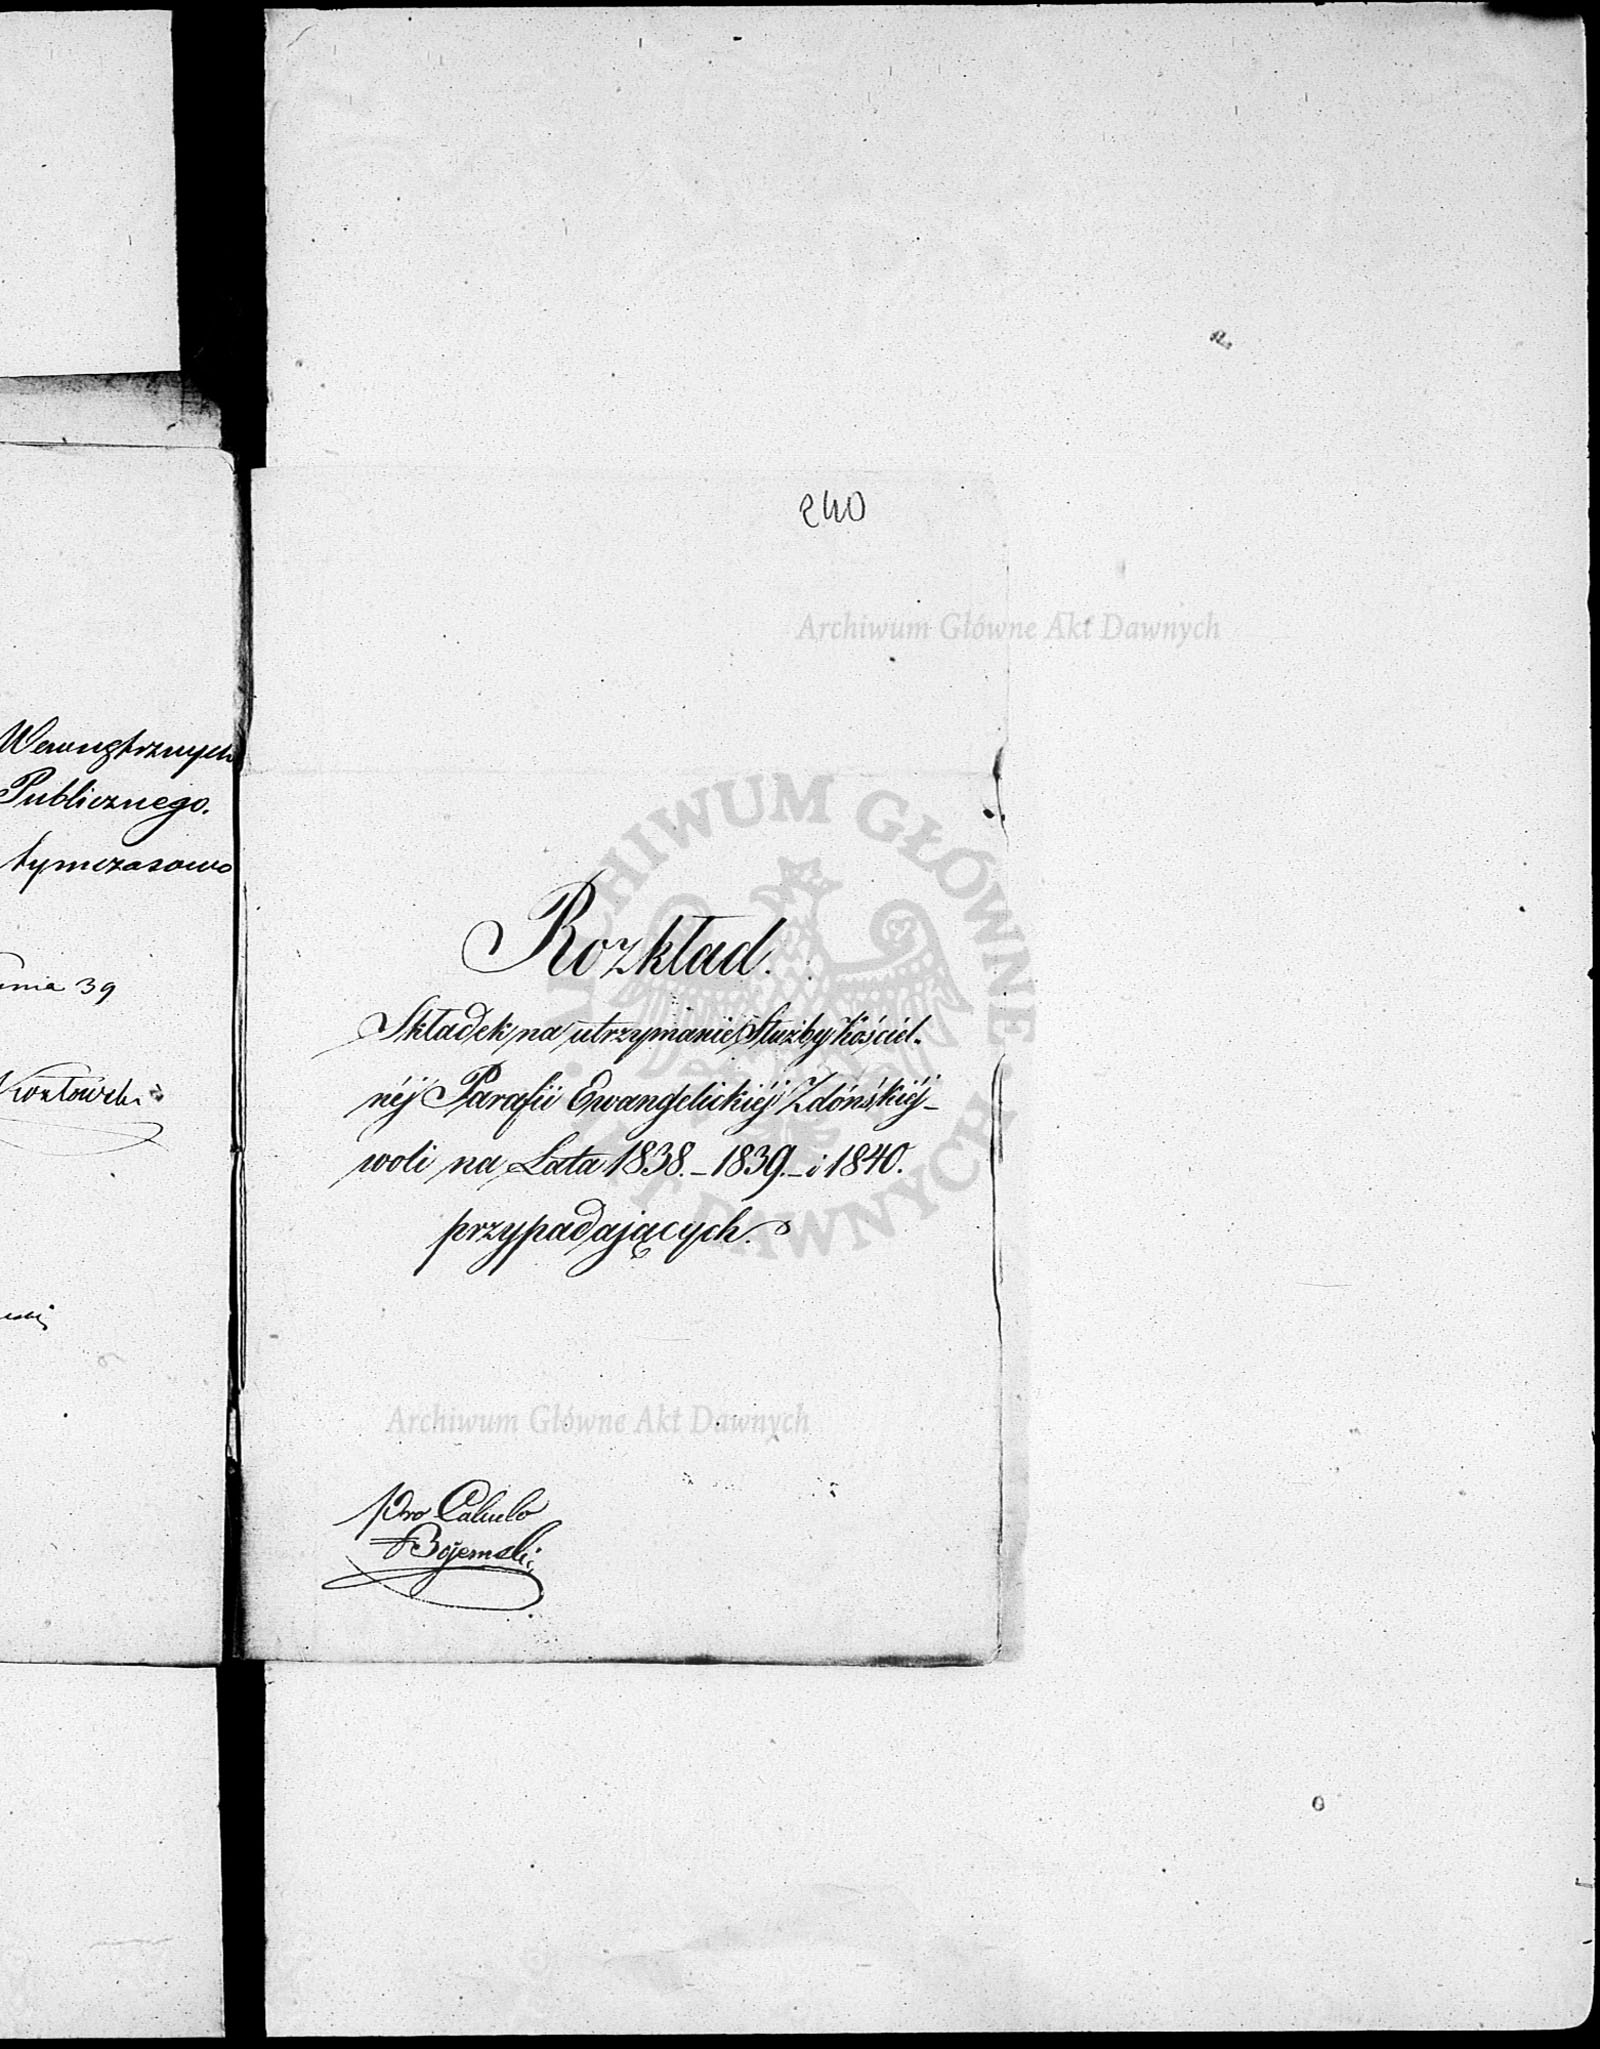 Wewnętrznych
Publicznego.
tymczasowo
39
240
Archiwum Główne Akt Dawnych
ARCHIWUM GŁÓWNE AKT DAWNYCH
Rozkład.
Składek na utrzymanie Służby Kościel-
néj Parafii Ewangelickiéj Zdóńskiéj-
woli na Lata 1838.-1839.-i 1840.
przypadających.
Archiwum Główne Akt Dawnych
Pro Calculo